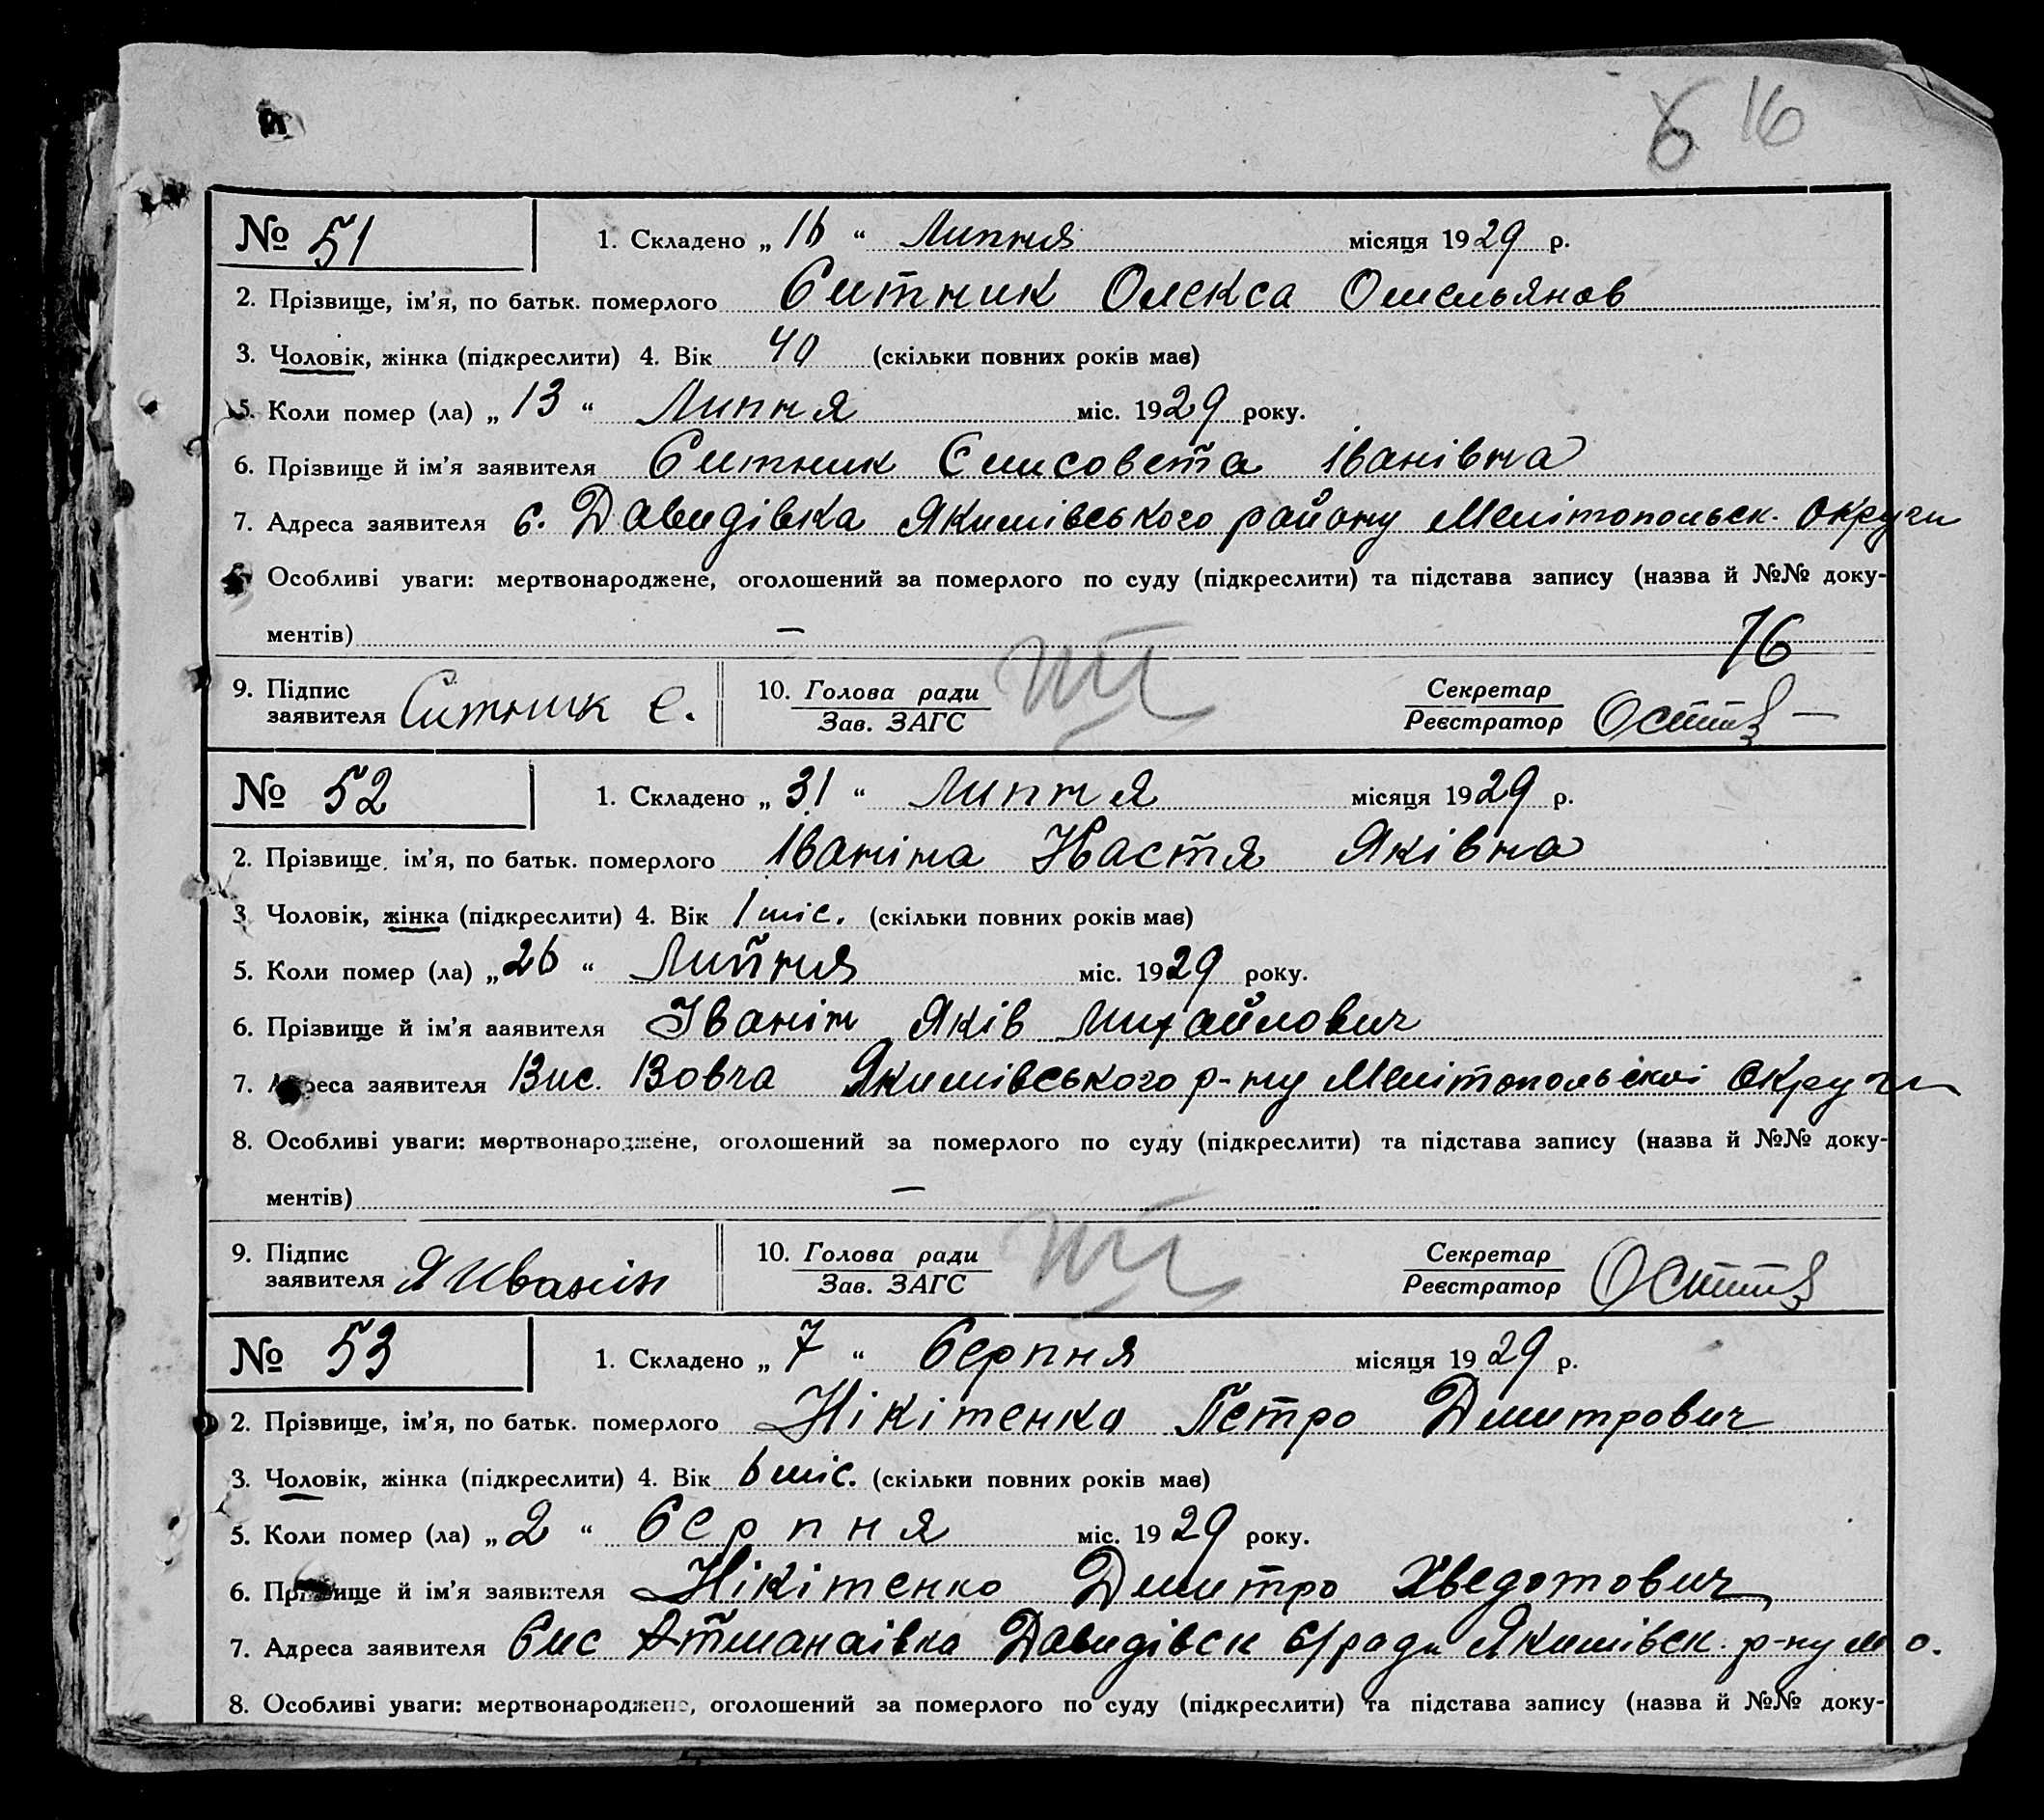 6 16
№ 51 1. Складено „ 16 “ Липня місяця 1929 р.
2. Прізвище, ім'я, по батьк. померлого Ситник Олекса Омельянов
3. Чоловік, жінка (підкреслити) 4. Вік 40 (скільки повних років має)
5. Коли помер (ла) „ 13 “ Липня міс. 1929 року.
6. Прізвище й ім'я заявителя Ситник Єлисовета Іванівна
7. Адреса заявителя с. Давидівка Якимівського району Мелітопольск. Округи
Особливі уваги: мертвонароджене, оголошений за померлого по суду (підкреслити) та підстава запису (назва й №№ доку-
ментів) — 16
9. Підпис 10. Голова ради Секретар
заявителя Ситник Є. Зав. ЗАГС Реєстратор
№ 52 1. Складено „ 31 “ Липня місяця 1929 р.
2. Прізвище, ім'я, по батьк. померлого Іваніна Настя Яківна
3. Чоловік, жінка (підкреслити) 4. Вік 1 міс. (скільки повних років має)
5. Коли помер (ла) „ 26 “ Липня міс. 1929 року.
6. Прізвище й ім'я заявителя Іванін Яків Михайлович
7. Адреса заявителя Вис. Вовча Якимівського р-ну Мелітопольскої Округи
8. Особливі уваги: мертвонароджене, оголошений за померлого по суду (підкреслити) та підстава запису (назва й №№ доку-
ментів) —
9. Підпис 10. Голова ради Секретар
заявителя Я Иванін Зав. ЗАГС Реєстратор
№ 53 1. Складено „ 7 “ Серпня місяця 1929 р.
2. Прізвище, ім'я, по батьк. померлого Нікітенко Петро Дмитрович
3. Чоловік, жінка (підкреслити) 4. Вік 6 міс. (скільки повних років має)
5. Коли помер (ла) „ 2 “ Серпня міс. 1929 року.
6. Прізвище й ім'я заявителя Нікітенко Дмитро Хведотович
7. Адреса заявителя Вис Атманаівка Давидівск С/ради Якимівск. р-ну М о.
8. Особливі уваги: мертвонароджене, оголошений за померлого по суду (підкреслити) та підстава запису (назва й №№ доку-